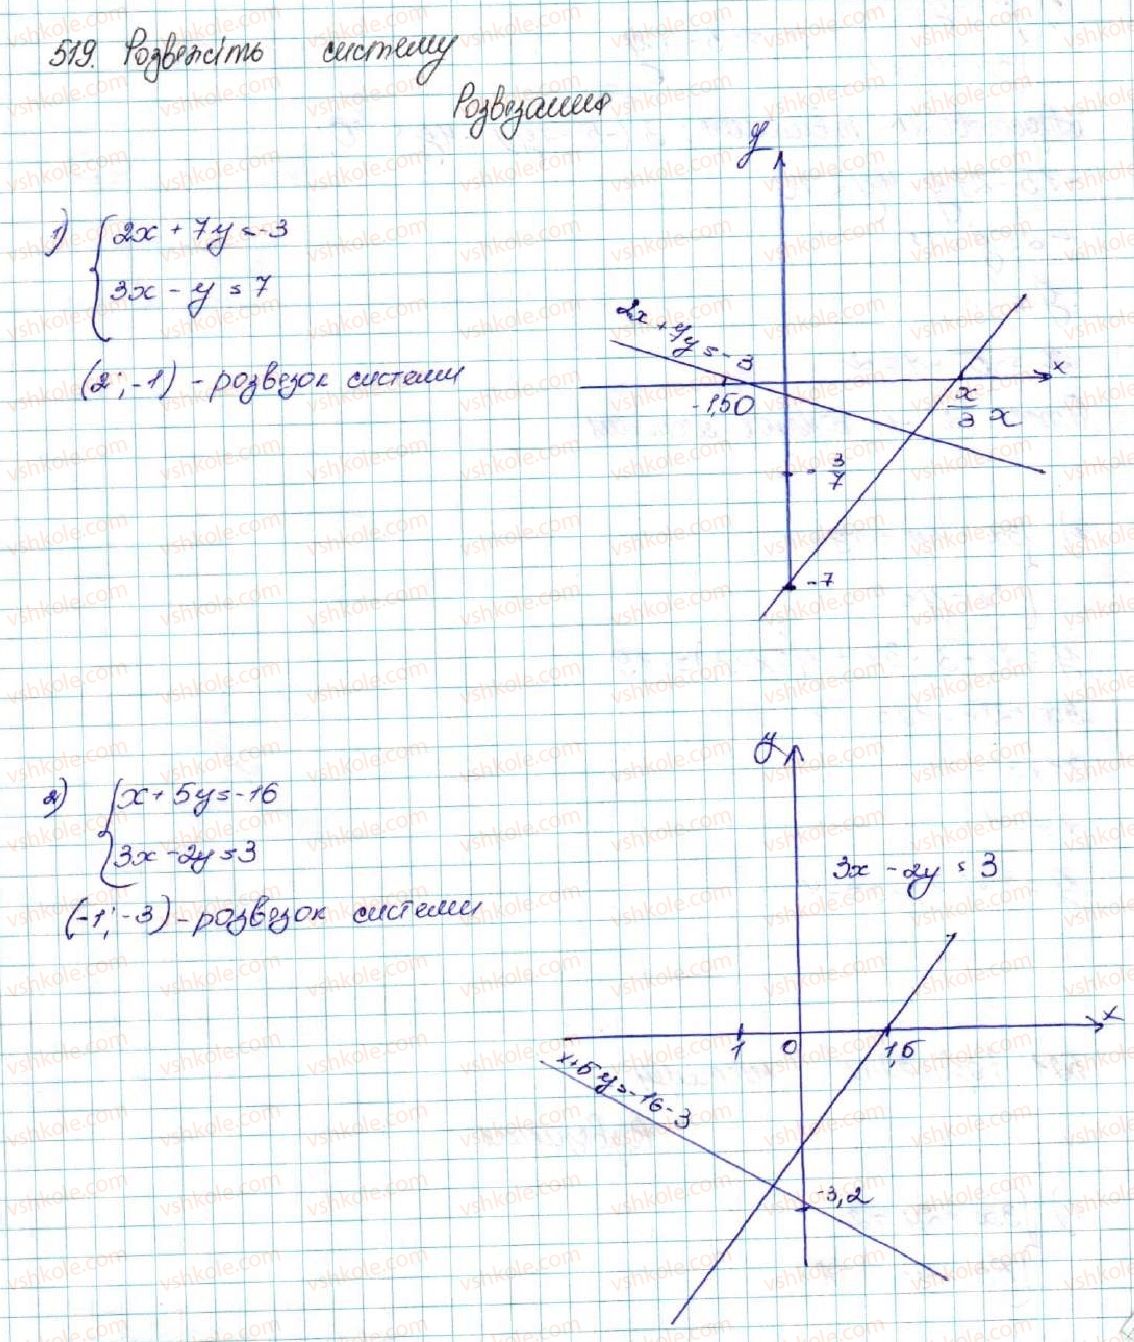 519. Розвяжіть систему
Розвязання
y
1) { 2x + 7y = -3
3x - y = 7
(2; -1) - розвезок системи
2x + 7y = -3
x
-1,50
x/3 x
-3/7
-7
y
2) { x + 5y = -16
3x - 2y = 3
(-1; -3) - розвезок системи
3x - 2y = 3
x
1 0 1,5
x+5y=-16-3
-3,2